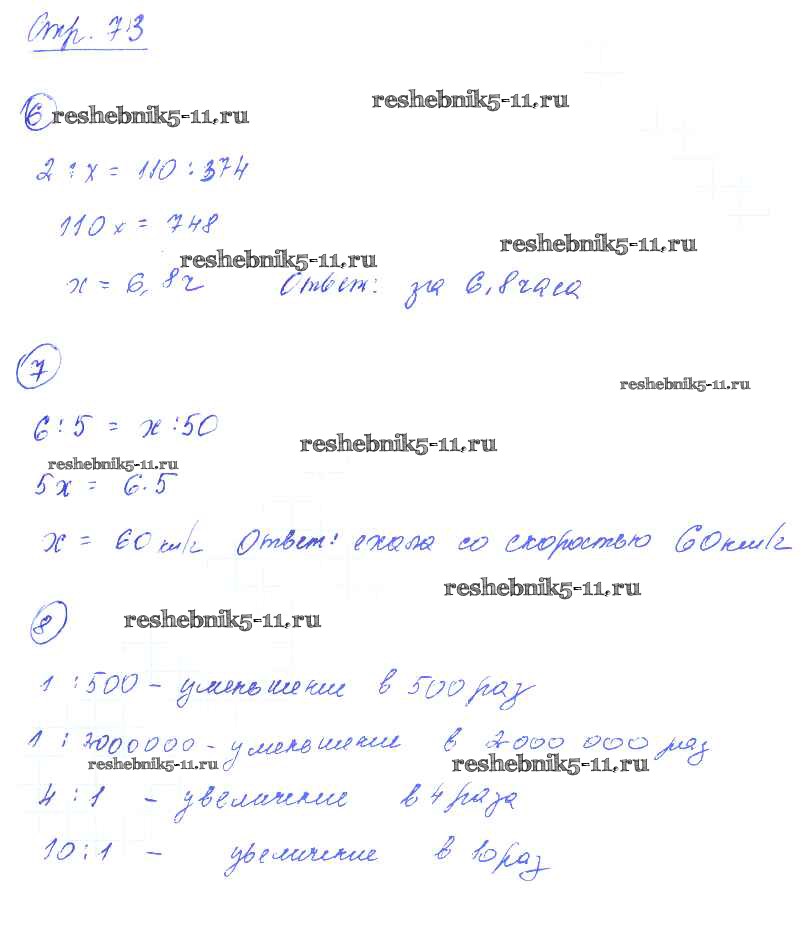 Стр. 73
6 reshebnik5-11.ru
reshebnik5-11.ru
2 : x = 110 : 374
110x = 748
reshebnik5-11.ru
reshebnik5-11.ru
x = 6,8ч Ответ: за 6,8 часа
7
reshebnik5-11.ru
6 : 5 = x : 50
reshebnik5-11.ru
reshebnik5-11.ru
5x = 6·5
x = 60 км/г Ответ: ехала со скоростью 60 км/г
reshebnik5-11.ru
8 reshebnik5-11.ru
1 : 500 - уменьшение в 500 раз
1 : 2000000 - уменьшение в 2000 000 раз
reshebnik5-11.ru reshebnik5-11.ru
4 : 1 - увеличение в 4 раза
10 : 1 - увеличение в 10 раз